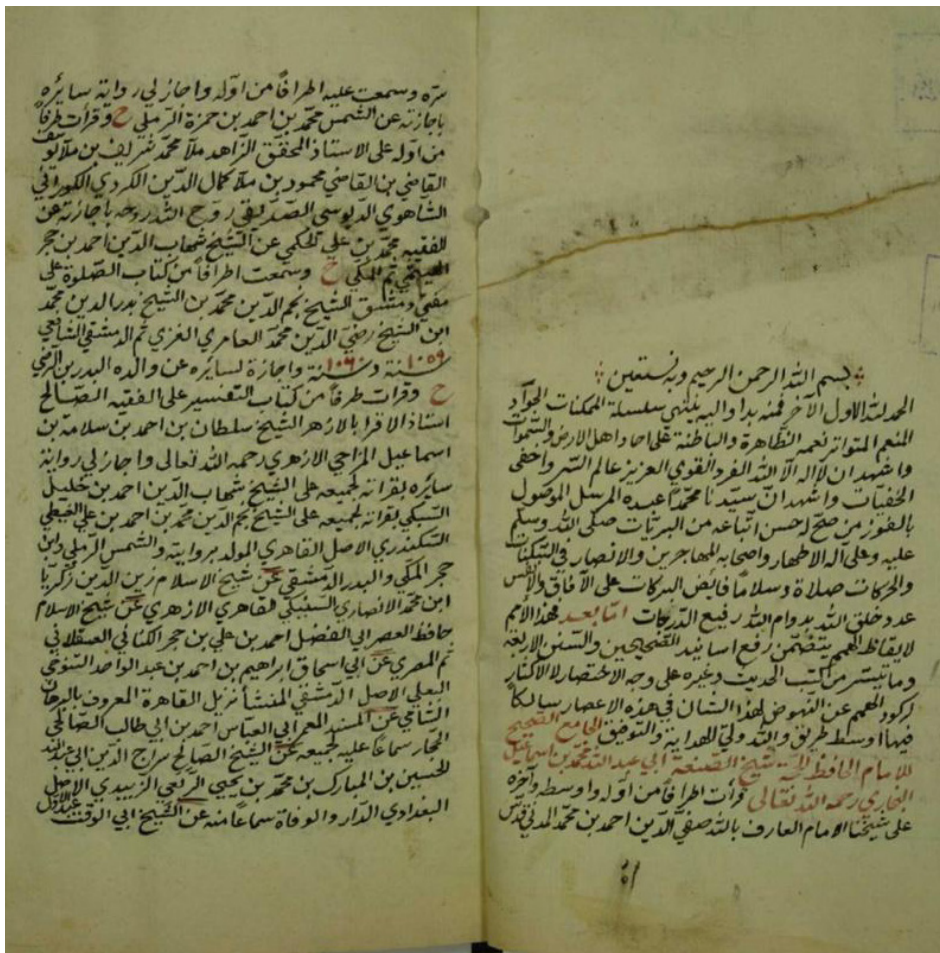 بسم الله الرحمن الرحيم وبه نستعين
الحمد لله الاول الآخر فمنه بدا واليه ينتهي سلسلة الممكنات الجواد
المنعم المتواتر نعمه الظاهرة والباطنة على احاد اهل الارض والسموات
واشهد ان لا اله الا الله الفرد القوي العزيز عالم السر واخفى
الخفيات واشهد ان سيدنا محمدا عبده المرسل الموصول
بالفوز من صح له حسن اتباعه من البريات صلى الله وسلم
عليه وعلى آله الاطهار واصحابه المهاجرين والانصار في السكنات
والحركات صلاة وسلاما فايض البركات على الآفاق والانفس
عدد خلق الله بدوام الله رفيع الدرجات اما بعد فهذا الامم
لايقاظ الهمم يتضمن رفع اسانيد الصحيحين والسنن الاربعة
وما تيسر من كتب الحديث وغيره على وجه الاختصار لا الاكثار
لركود الهمم عن النهوض لهذا الشان في هذه الاعصار سالكا
فيها اوسط طريق والله ولي الهداية والتوفيق الجامع الصحيح
للامام الحافظ الحجة شيخ الصنعة ابي عبد الله محمد بن اسماعيل
البخاري رحمه الله تعالى قرأت اطرافا من اوله واوسطه وآخره
على شيخنا الامام العارف بالله صفي الدين احمد بن محمد المدني قدس
سره وسمعت عليه اطرافا من اوله واجاز لي رواية سايره
باجازته عن الشمس محمد بن احمد بن حمزة الرملي ح وقرأت طرفا
من اوله على الاستاذ المحقق الزاهد ملا محمد شريف بن ملا يوسف
القاضي بن القاضي محمود بن ملا كمال الدين الكردي الكوراني
الشاهوي الصديقي روح الله روحه باجازته عن
الفقيه محمد بن علي الحكمي عن الشيخ شهاب الدين احمد بن حجر
الهيتمي ثم المكي ح وسمعت اطرافا من كتاب الصلوة على
مفتي دمشق الشيخ نجم الدين محمد بن الشيخ بدر الدين محمد
ابن الشيخ رضي الدين محمد العامري الغزي ثم الدمشقي الشافعي
سنة ١٠٥٩ وسنة ١٠٦٠ واجازة لسايره عن والده البدر بن الرضي
ح وقرات طرفا من كتاب التفسير على الفقيه الصالح
استاذ الاقرا بالازهر الشيخ سلطان بن احمد بن سلامة بن
اسماعيل المزاحي الازهري رحمه الله تعالى واجاز لي رواية
سايره بقراته لجميعه على الشيخ شهاب الدين احمد بن خليل
السبكي بقراته لجميعه على الشيخ نجم الدين محمد بن احمد بن علي الغيطي
السكندري الاصل القاهري المولد بروايته والشمس الرملي وابن
حجر المكي والبدر الدمشقي عن شيخ الاسلام زين الدين زكريا
ابن محمد الانصاري السنيكي القاهري الازهري عن شيخ الاسلام
حافظ العصر ابي الفضل احمد بن علي بن حجر الكناني العسقلاني
ثم المصري عن ابي اسحاق ابراهيم بن احمد بن عبد الواحد التنوخي
البعلي الاصل الدمشقي المنشأ نزيل القاهرة المعروف بالبرهان
الشامي عن المسند المعمر ابي العباس احمد بن ابي طالب الصالحي
الحجار سماعا عليه لجميعه عن الشيخ الصالح سراج الدين ابي عبد الله
الحسين بن المبارك بن محمد بن يحيى الربعي الزبيدي الاصل
البغدادي الدار والوفاة سماعا منه عن الشيخ ابي الوقت عبد الاول